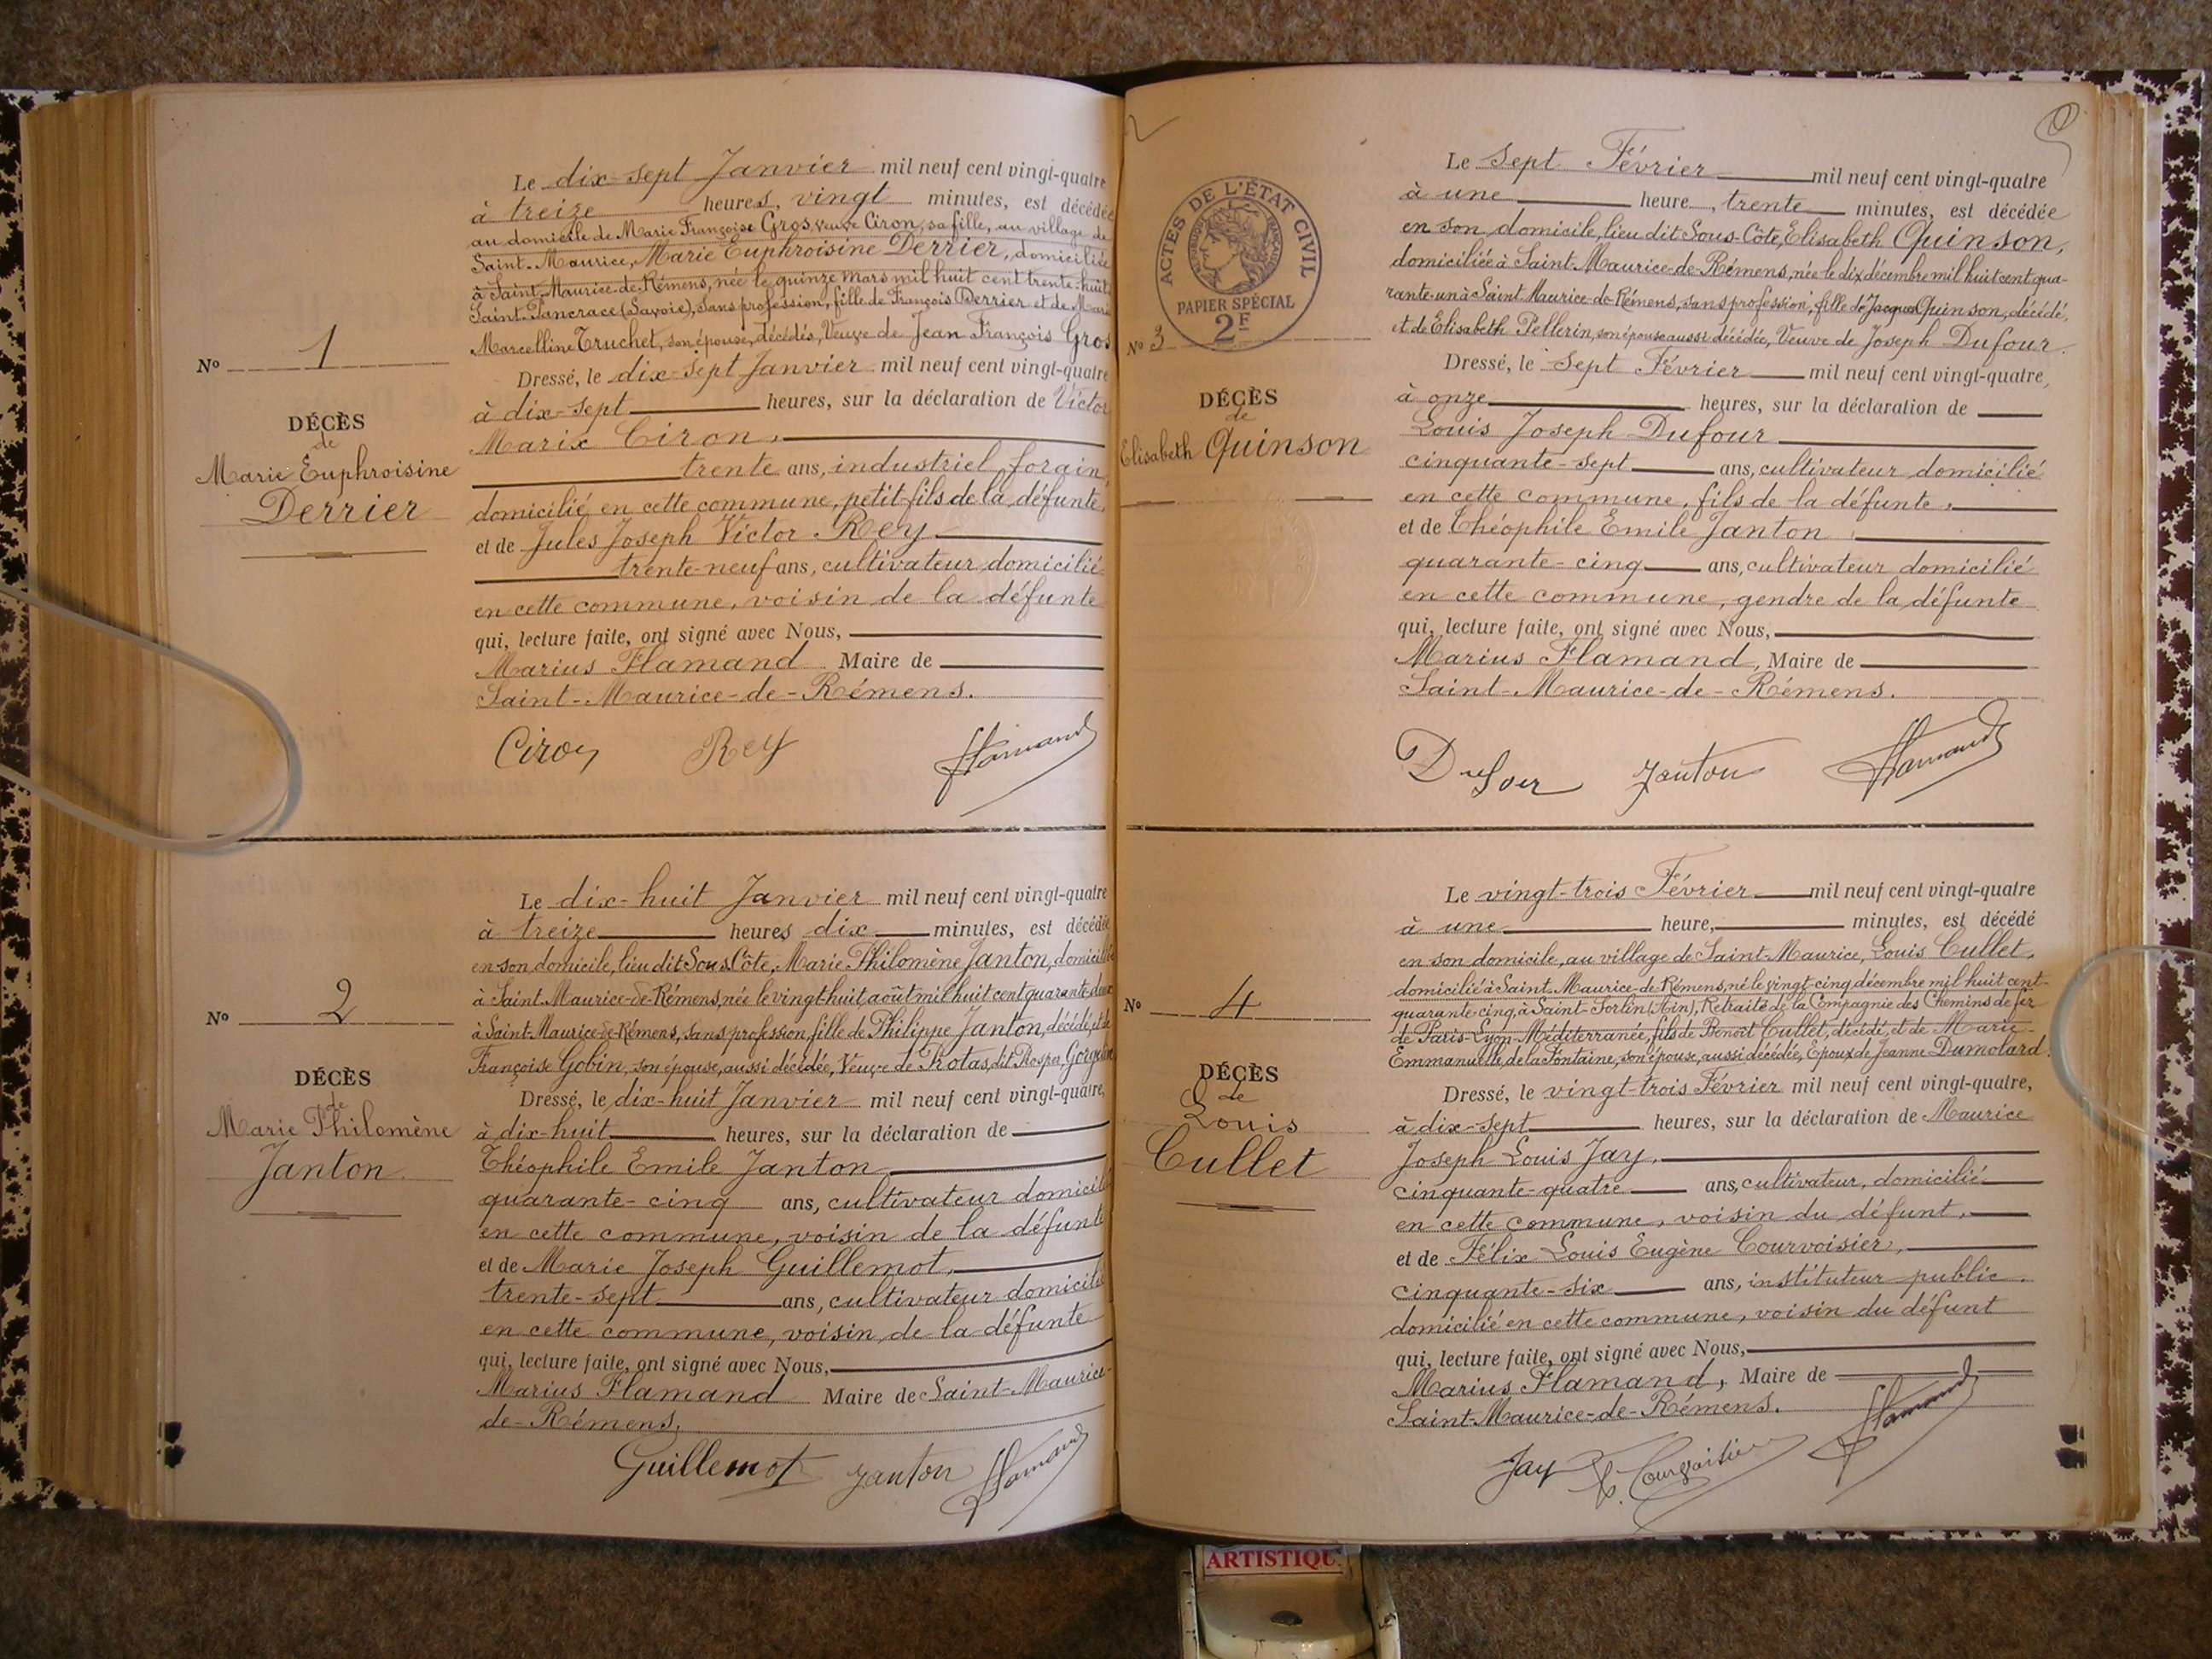 Le dix-sept Janvier mil neuf cent vingt-quatre
à treize heures, vingt minutes, est décédée
au domicile de Marie Françoise Gros, veuve Ciron, sa fille, au village de
Saint-Maurice, Marie Euphroisine Derrier, domiciliée
à Saint-Maurice-de-Rémens, née le quinze mars mil huit cent trente-huit
Saint-Pancrace (Savoie), sans profession, fille de François Derrier et de Marie
Marcelline Truchet, son épouse, décédés, Veuve de Jean François Gros
No 1
DÉCÈS
de
Marie Euphroisine
Derrier
Dressé, le dix-sept Janvier mil neuf cent vingt-quatre
à dix-sept heures, sur la déclaration de Victor
Marix Ciron,
trente ans, industriel forain,
domicilié en cette commune, petit-fils de la défunte,
et de Jules Joseph Victor Rey
trente-neuf ans, cultivateur domicilié
en cette commune, voisin de la défunte
qui, lecture faite, ont signé avec Nous,
Marius Flamand Maire de
Saint-Maurice-de-Rémens.
Ciron Rey Flamand
Le dix-huit Janvier mil neuf cent vingt-quatre
à treize heures dix minutes, est décédée
en son domicile, lieu dit Sous Côte, Marie Philomène Janton, domiciliée
à Saint-Maurice-de-Rémens, née le vingt-huit août mil huit cent quarante-deux
à Saint-Maurice-de-Rémens, sans profession, fille de Philippe Janton, décédé, et de
Françoise Gobin, son épouse, aussi décédée, Veuve de Protas, dit Prosper,
No 2
DÉCÈS
de
Marie Philomène
Janton
Dressé, le dix-huit Janvier mil neuf cent vingt-quatre,
à dix-huit heures, sur la déclaration de
Théophile Emile Janton
quarante-cinq ans, cultivateur domicilié
en cette commune, voisin de la défunte
et de Marie Joseph Guillemot,
trente-sept ans, cultivateur domicilié
en cette commune, voisin de la défunte
qui, lecture faite, ont signé avec Nous,
Marius Flamand Maire de Saint-Maurice-
de-Rémens.
Guillemot Janton Flamand
ACTES DE L'ÉTAT CIVIL
RÉPUBLIQUE FRANÇAISE
PAPIER SPÉCIAL
2F
Le Sept Février mil neuf cent vingt-quatre
à une heure, trente minutes, est décédée
en son domicile, lieu dit Sous-Côte, Elisabeth Quinson,
domiciliée à Saint-Maurice-de-Rémens, née le dix décembre mil huit cent qua-
rante-un à Saint-Maurice-de-Rémens, sans profession, fille de Jacques Quinson, décédé,
et de Elisabeth Pellerin, son épouse aussi décédée, Veuve de Joseph Dufour.
No 3
DÉCÈS
de
Elisabeth Quinson
Dressé, le Sept Février mil neuf cent vingt-quatre,
à onze heures, sur la déclaration de
Louis Joseph Dufour
cinquante-sept ans, cultivateur domicilié
en cette commune, fils de la défunte,
et de Théophile Emile Janton,
quarante-cinq ans, cultivateur domicilié
en cette commune, gendre de la défunte
qui, lecture faite, ont signé avec Nous,
Marius Flamand, Maire de
Saint-Maurice-de-Rémens.
Dufour Janton Flamand
Le vingt-trois Février mil neuf cent vingt-quatre
à une heure, minutes, est décédé
en son domicile, au village de Saint-Maurice, Louis Cullet,
domicilié à Saint-Maurice-de-Rémens, né le vingt-cinq décembre mil huit cent-
quarante-cinq, à Saint-Sorlin (Ain), Retraité de la Compagnie des Chemins de fer
de Paris-Lyon-Méditerranée, fils de Benoît Cullet, décédé, et de Marie-
Emmanuelle de la Fontaine, son épouse, aussi décédée, Epoux de Jeanne Dumolard.
No 4
DÉCÈS
de
Louis
Cullet
Dressé, le vingt-trois Février mil neuf cent vingt-quatre,
à dix-sept heures, sur la déclaration de Maurice
Joseph Louis Jay,
cinquante-quatre ans, cultivateur, domicilié
en cette commune, voisin du défunt,
et de Félix Louis Eugène Courvoisier,
cinquante-six ans, instituteur public,
domicilié en cette commune, voisin du défunt
qui, lecture faite, ont signé avec Nous,
Marius Flamand, Maire de
Saint-Maurice-de-Rémens.
Jay F. Courvoisier Flamand
ARTISTIQU